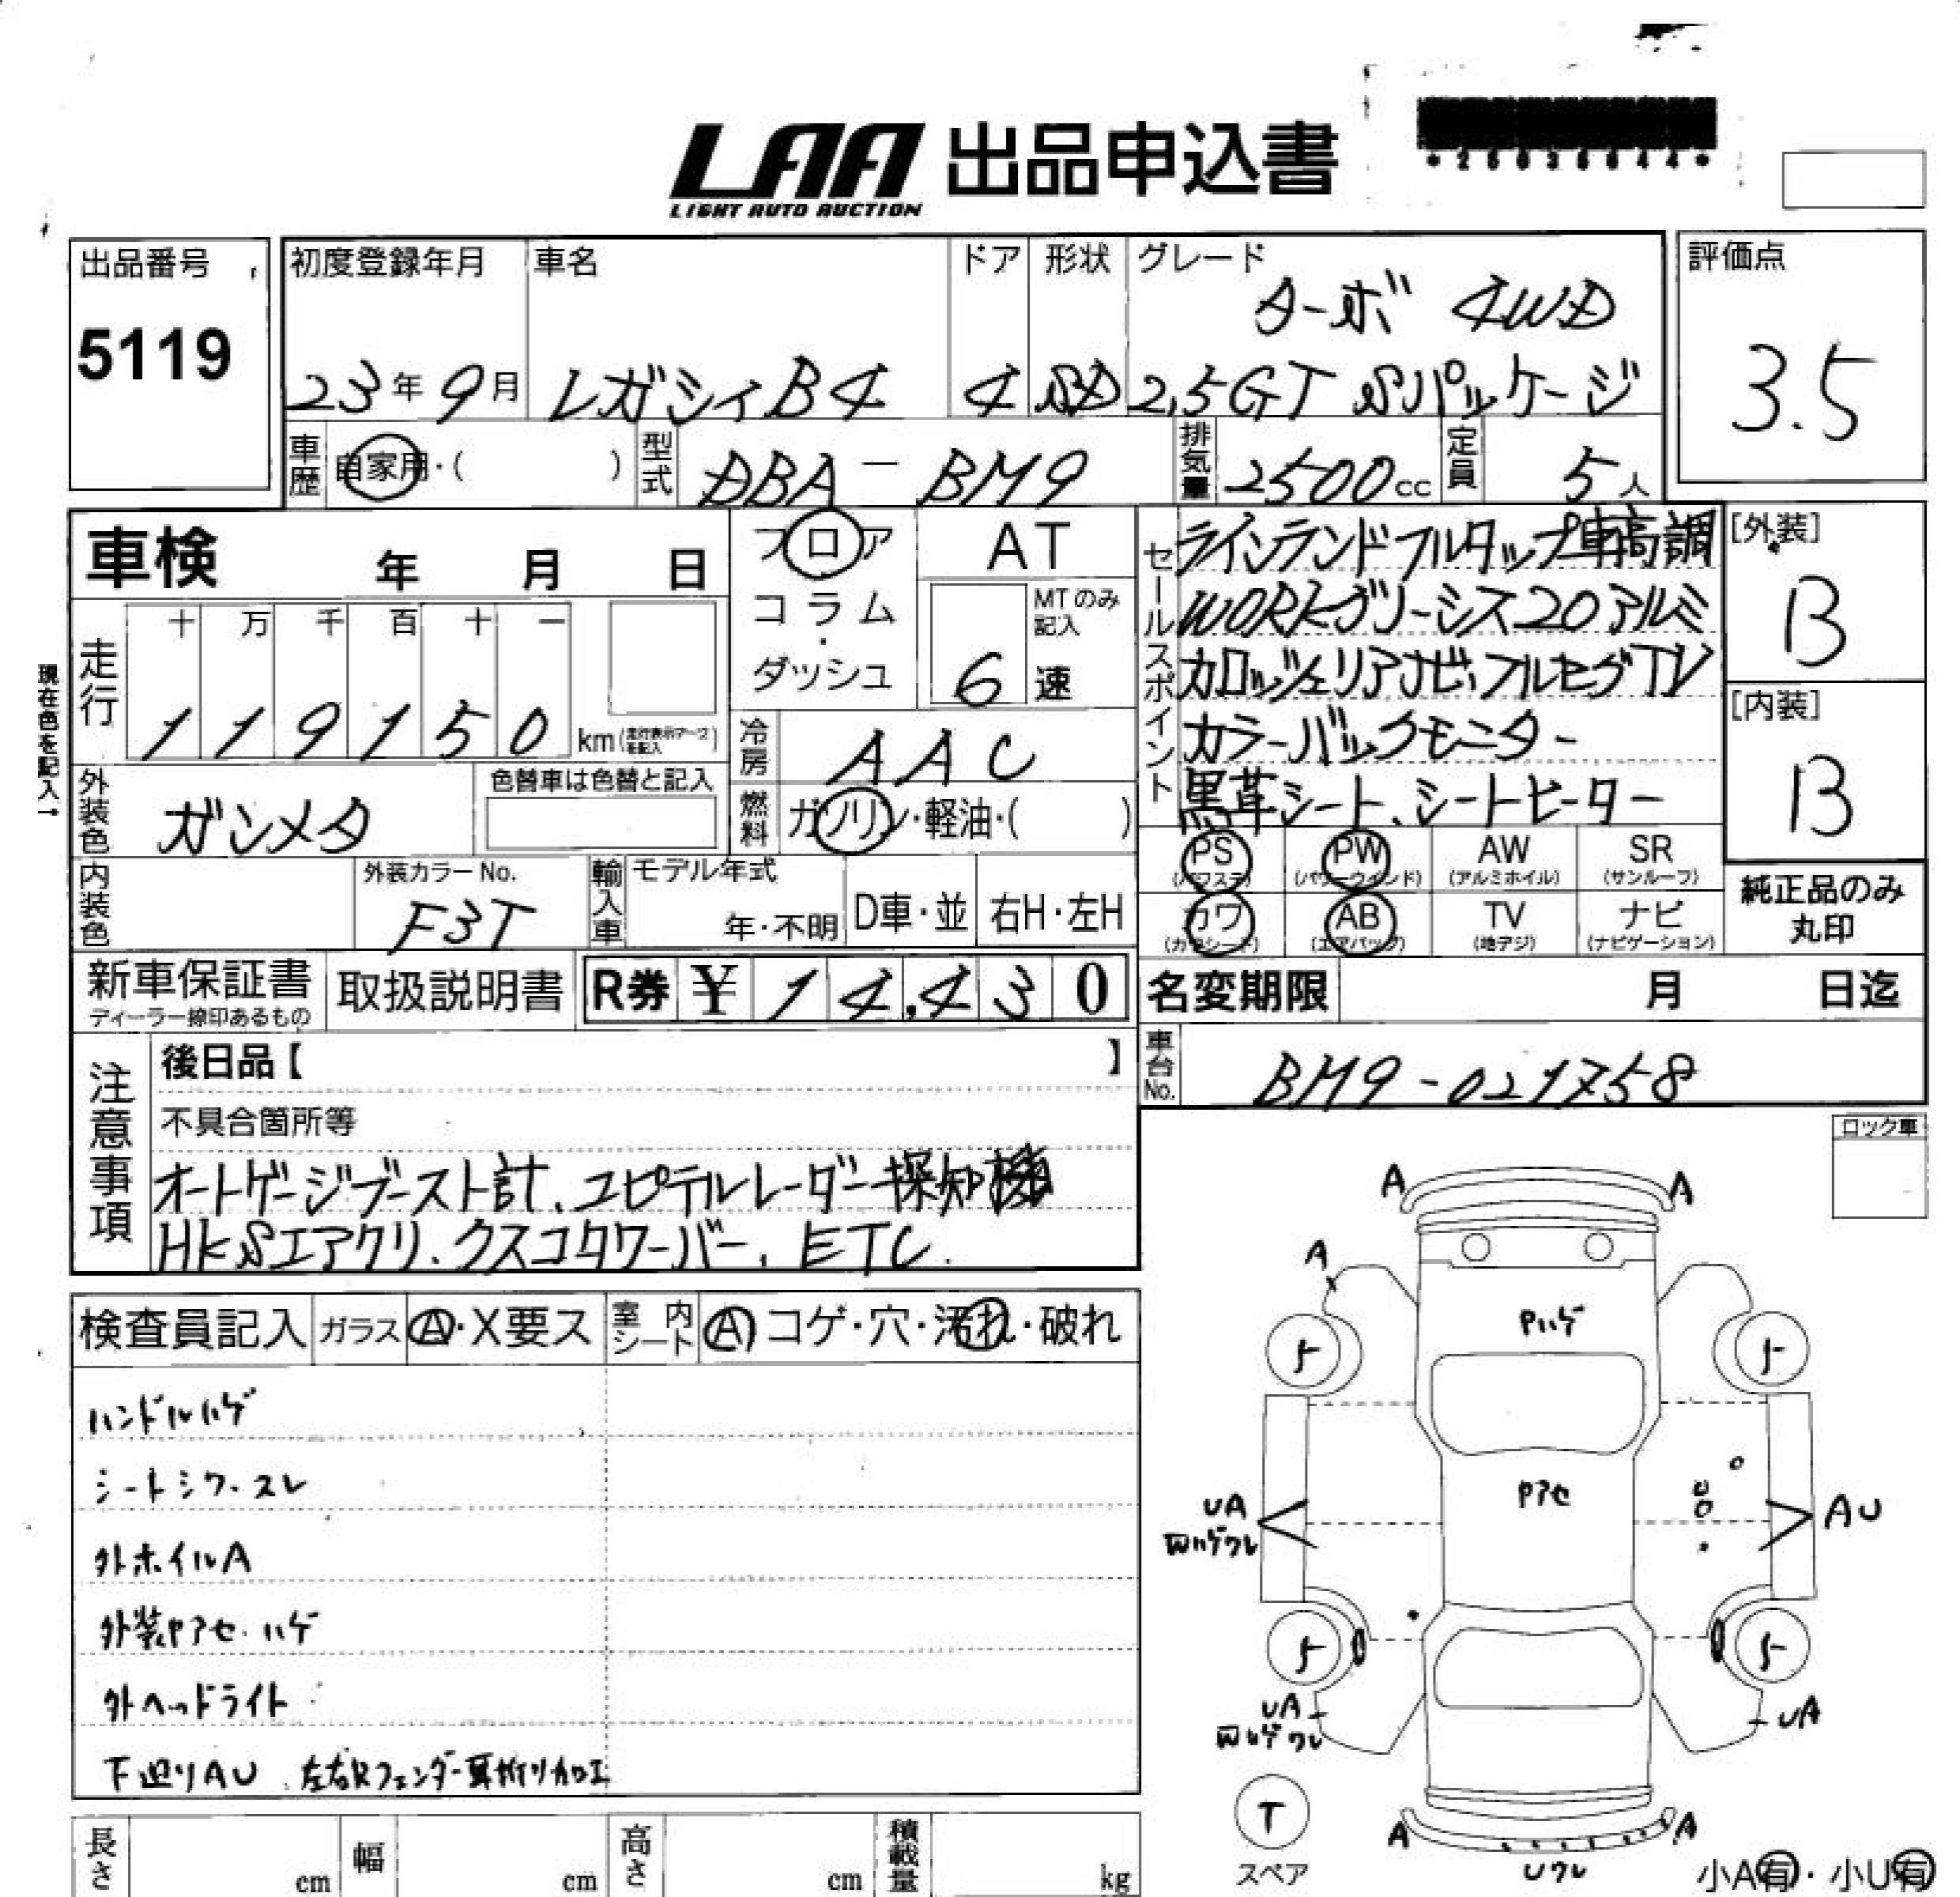 LAA 出品申込書
LIGHT AUTO AUCTION
出品番号
5119
初度登録年月
23年9月
車名
レガシィB4
ドア
4
形状
SD
グレード
ターボ 4WD
2.5GT Sパッケージ
評価点
3.5
車歴
自家用・( )
型式
DBA-BM9
排気量
2500cc
定員
5人
車検 年 月 日
フロア
コラム
・
ダッシュ
AT
MTのみ
記入
6速
セールスポイント
ラインランドフルタップ車高調
WORKグリーシス20アルミ
カロッツェリアナビ、フルセグTV
カラーバックモニター
黒革シート、シートヒーター
[外装]
B
[内装]
B
現在色を記入→
走行
十 万 千 百 十 一
1 1 9 1 5 0 km
冷房
AAC
外装色
ガンメタ
色替車は色替と記入
燃料
ガソリン・軽油・( )
PS
(パワステ)
PW
(パワーウインド)
AW
(アルミホイル)
SR
(サンルーフ)
内装色
外装カラーNo.
F3T
輸入車
モデル年式
年・不明
D車・並
右H・左H
カワ
(カワシート)
AB
(エアバッグ)
TV
(地デジ)
ナビ
(ナビゲーション)
純正品のみ
丸印
新車保証書
取扱説明書
R券 ¥ 14,430
名変期限 月 日迄
車台No.
BM9-021758
注意事項
後日品【 】
不具合箇所等
オートゲージブースト計、ユピテルレーダー探知機
HKSエアクリ、クスコタワーバー、ETC.
ロック車
検査員記入
ガラス
A・X要ス
室内
シート
A コゲ・穴・汚れ・破れ
ハンドルハゲ
シートシワ・スレ
外ホイルA
外装Pアセ・ハゲ
外ヘッドライト
下廻りAU 左右Rフェンダー耳折り加工
A A
A
Pハゲ
5 5
Pアセ
UA
AU
5 5
UA
UA
T
スペア
A A
Uワレ
小A有・小U有
長さ cm
幅 cm
高さ cm
積載量 kg